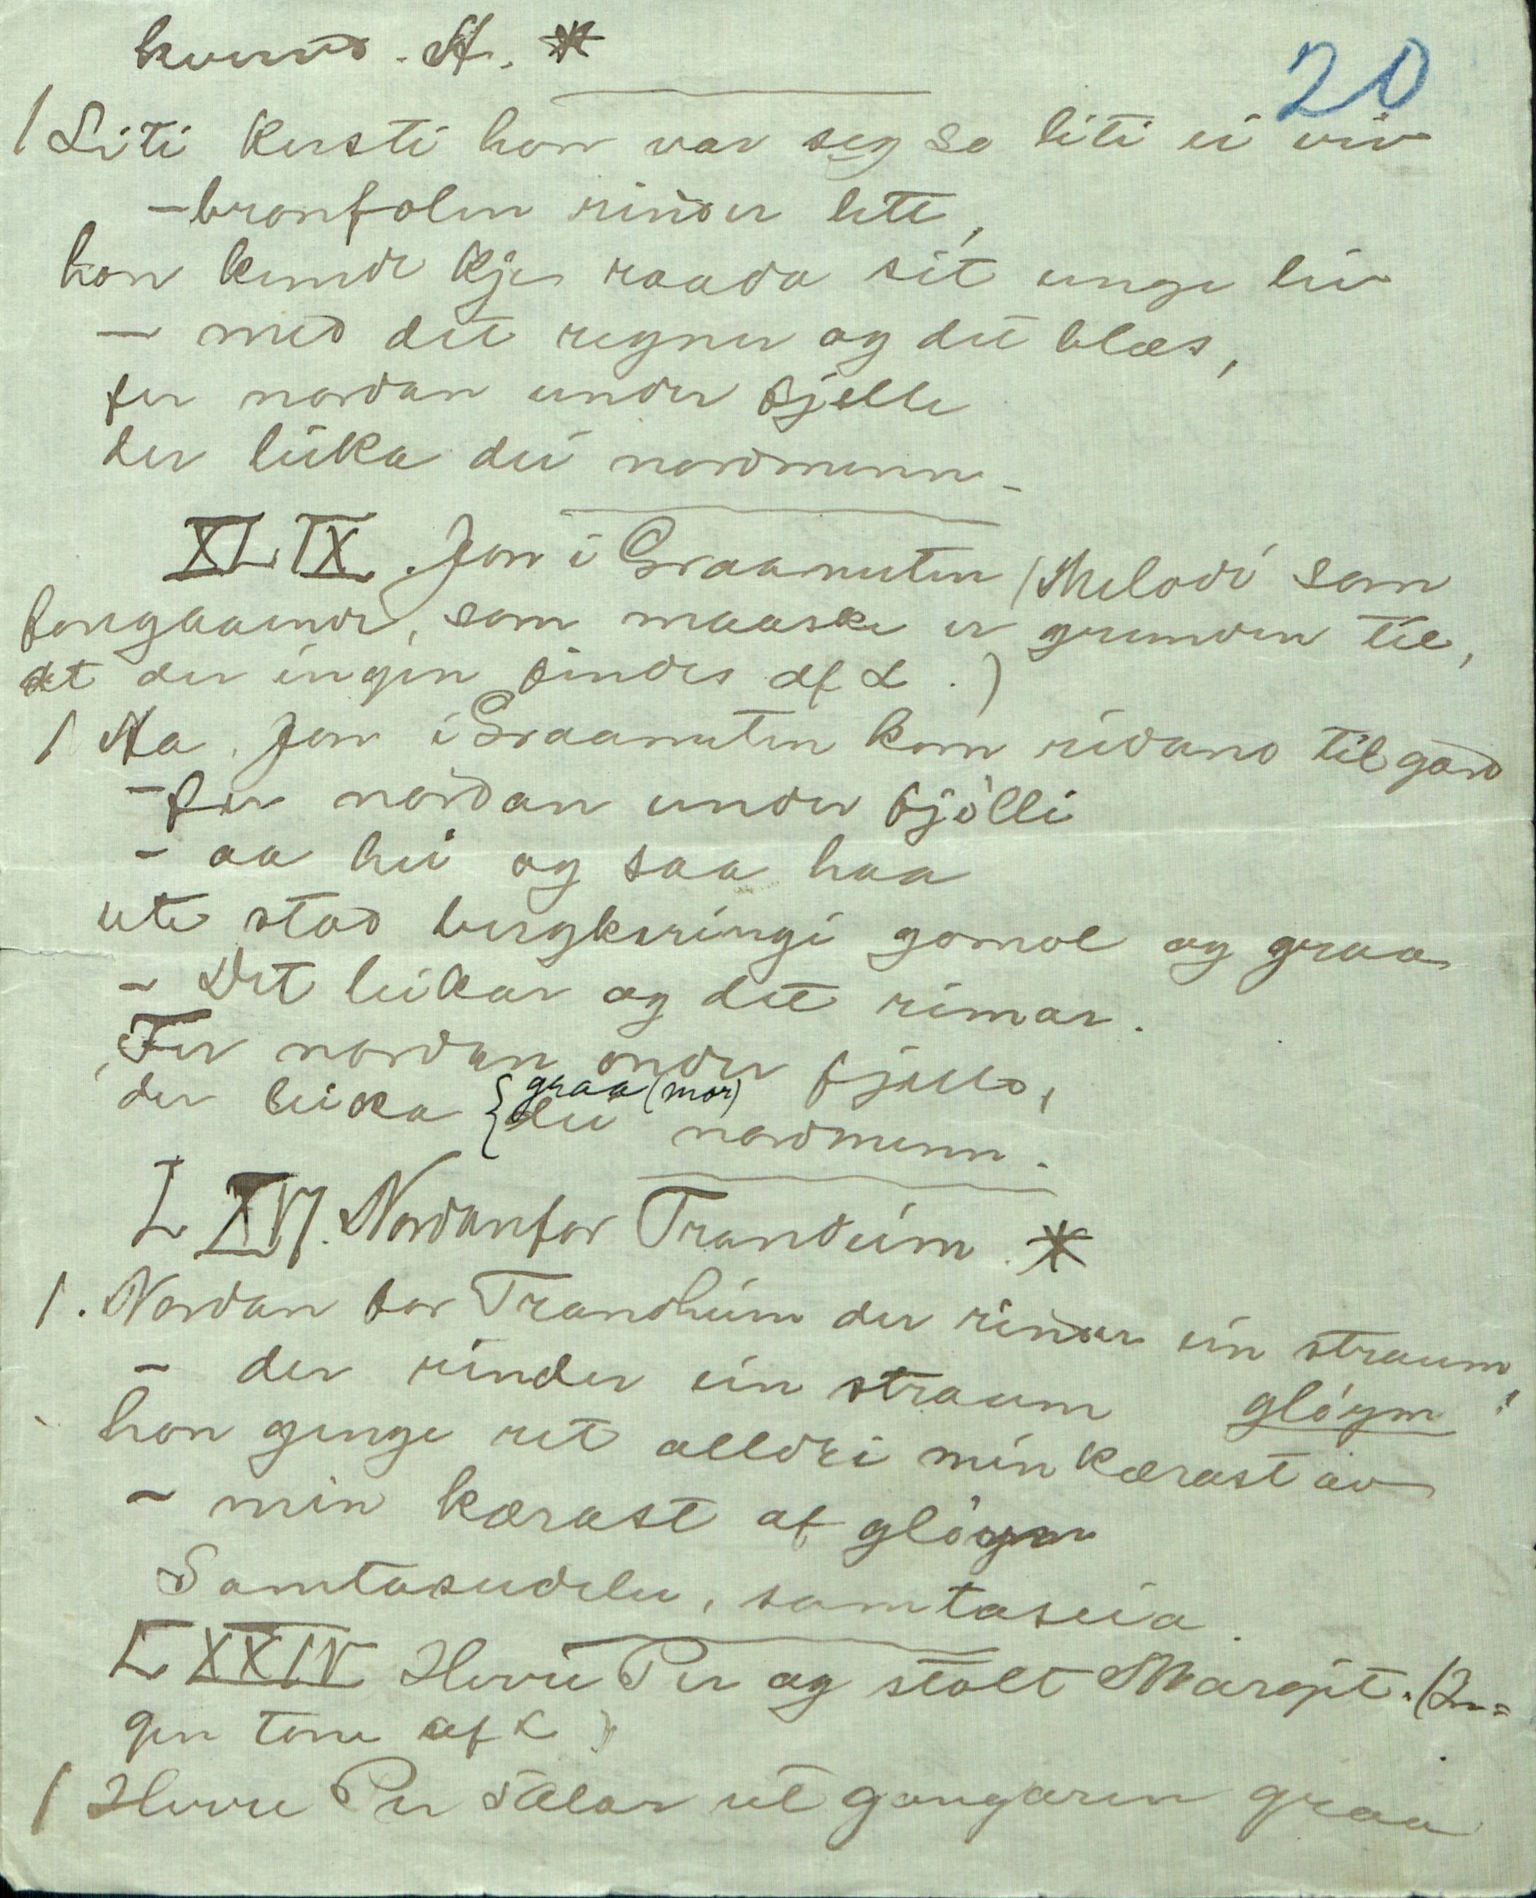 kverve. A. *
20
1 Liti Kersti hon var seg so liti ei viv
- bronfolen rinder lett,
hon kunde kje raada sit unge liv
- med det regner og det blæs,
fer nordan under fjelle
der leika dei nordmenn -
XLIX. Jon i Graanuten (Melodi som
foregaaende, som maaske er grunden til,
at der ingen findes af L.)
1 Aa Jon i Graanuten kom ridand til gard
- fer nordan under fjølli
- aa hei og saa haa
ute stod bergkvringi gomol og graa
- Det leikar og det rimar.
Fer nordan onder fjelle,
der leika { dei graa (mor) nordmenn.
LXVI. Nordanfor Trondeim *
1. Nordan for Trondheim der rinder ein straum,
- der rinder ein straum gløym!
hon genge ret alldri min kærast av
- min kærast af gløym
Samtasudelei, samtaseia.
LXXIV Herre Per og stolt Margjit. (In=
gen tone af L)
1 Herre Per sålar ut gangaren graa